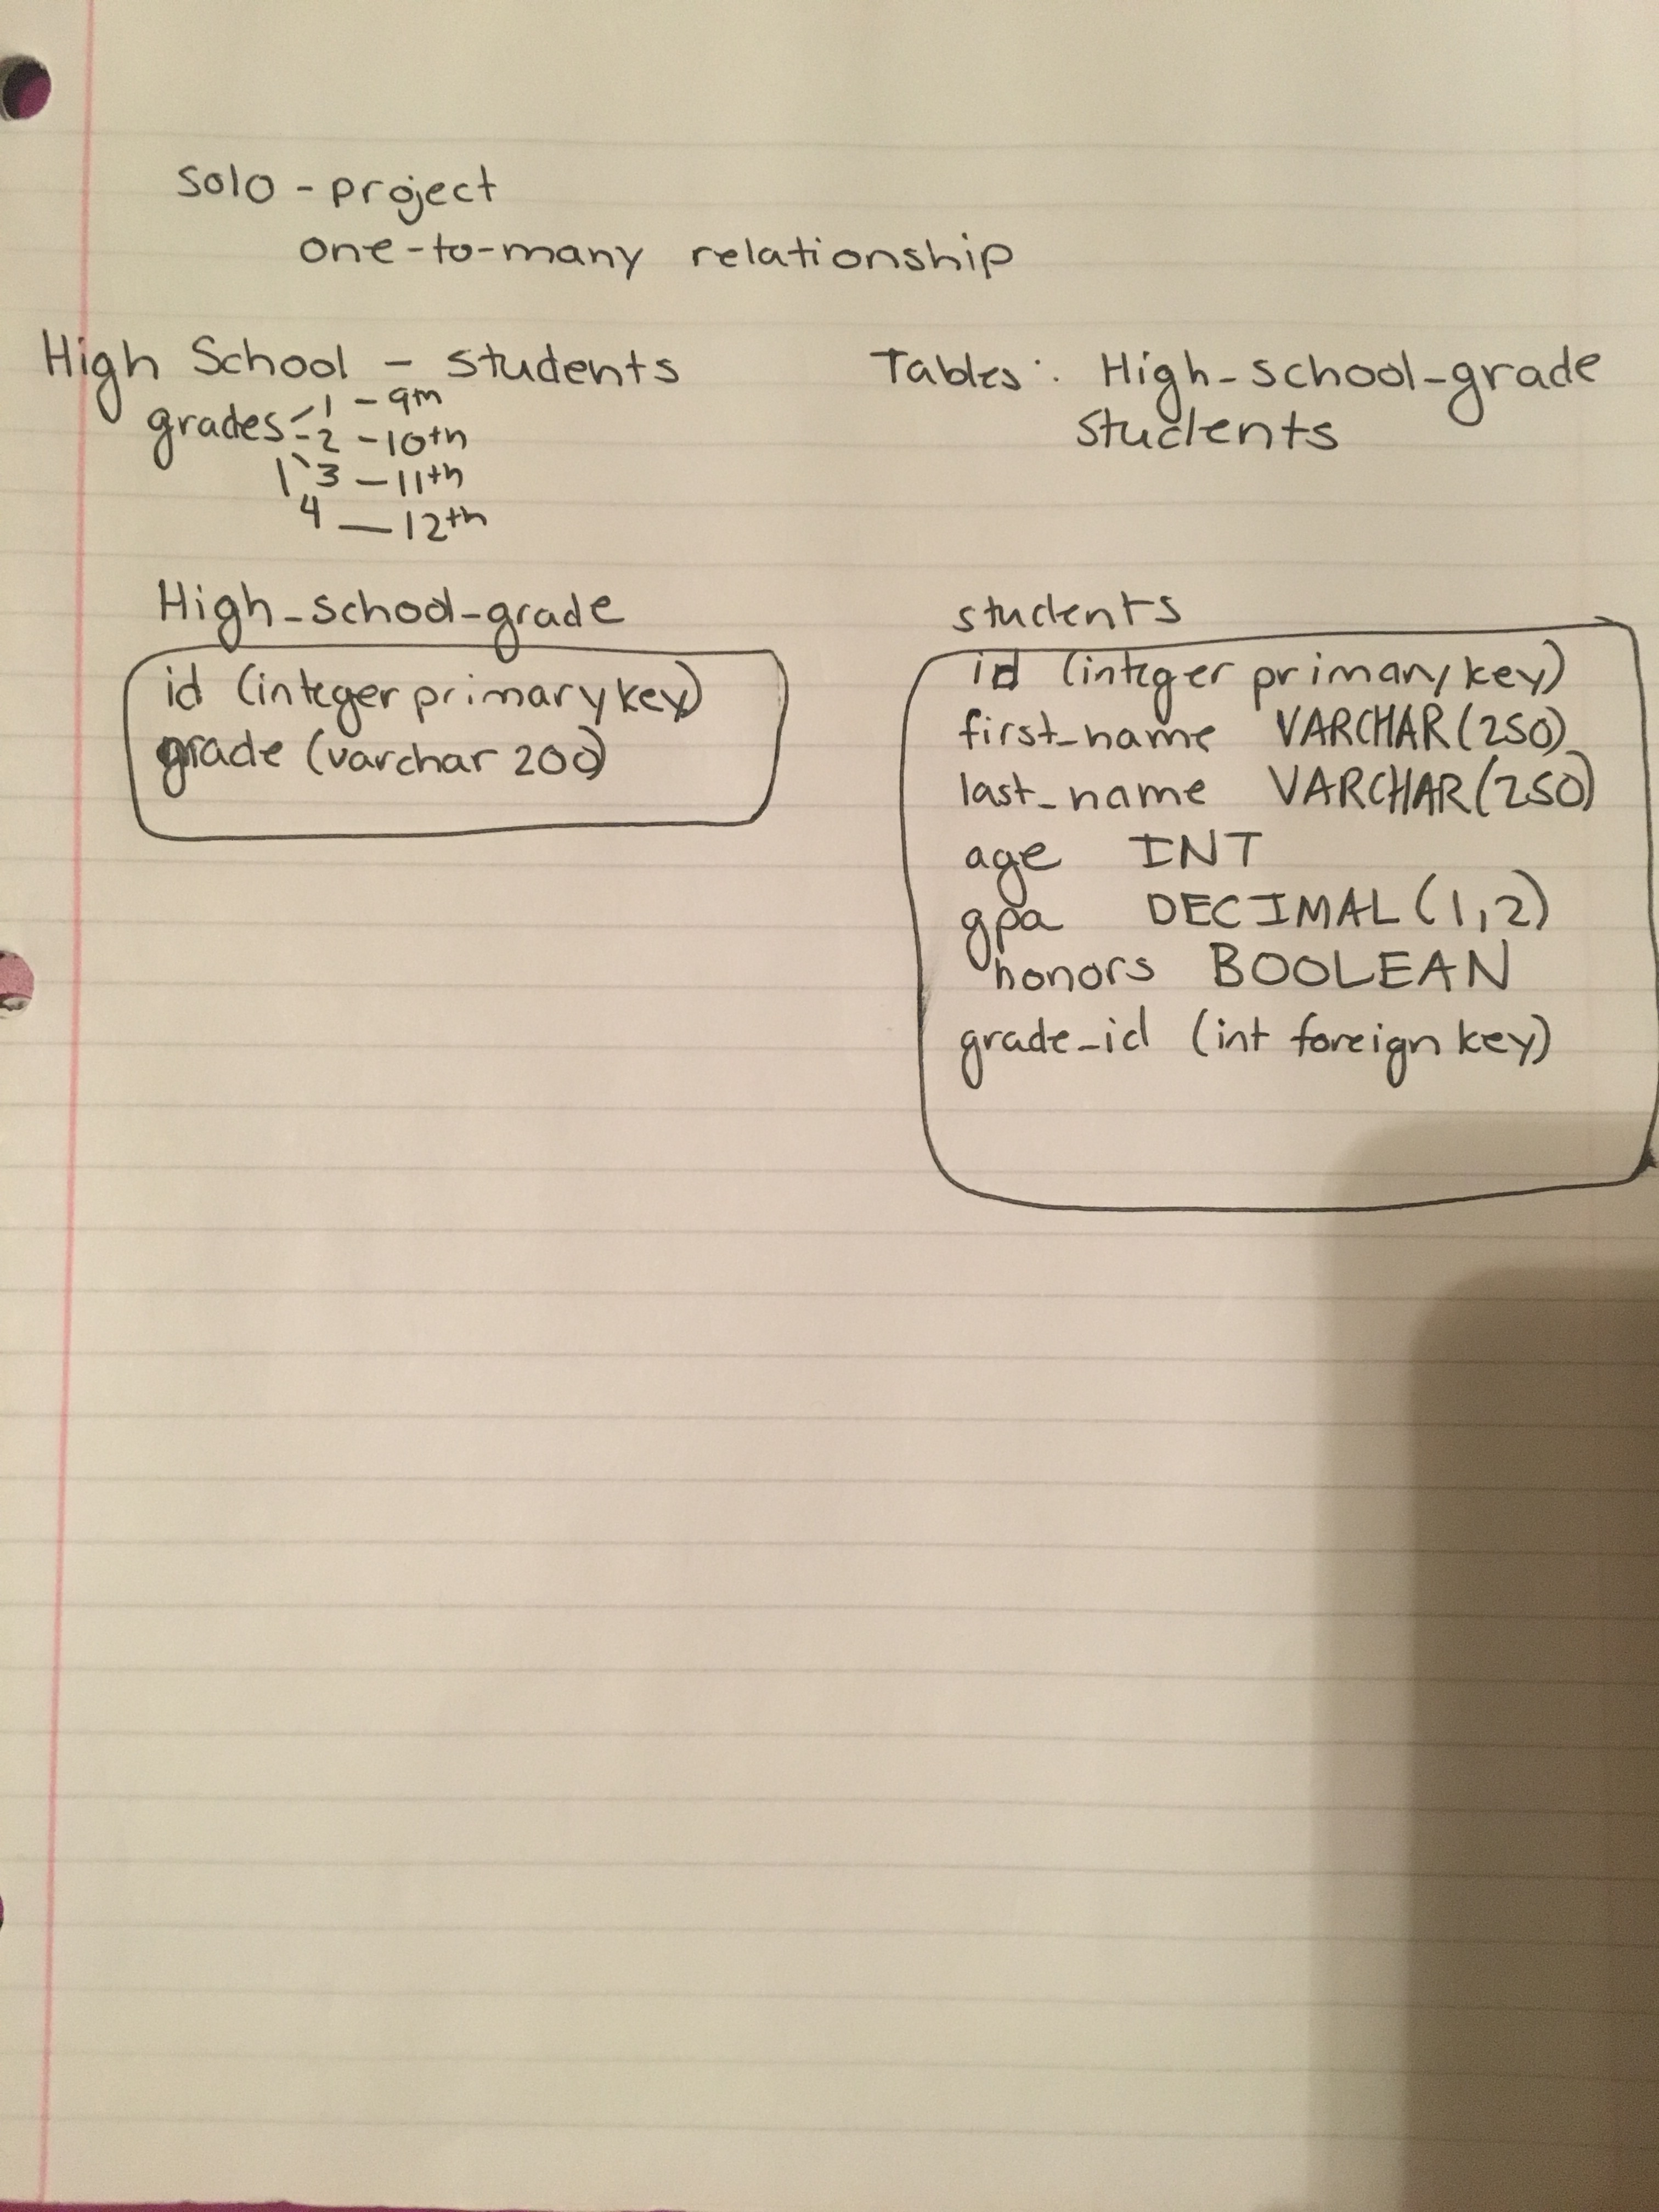 solo - project
one-to-many relationship
High School - students
grades - 1 - 9th
- 2 - 10th
1 3 - 11th
4 - 12th
Tables: High_school_grade
students
High_school_grade
id (integer primary key)
grade (varchar 200)
students
id (integer primary key)
first_name VARCHAR(250)
last_name VARCHAR(250)
age INT
gpa DECIMAL(1,2)
honors BOOLEAN
grade_id (int foreign key)